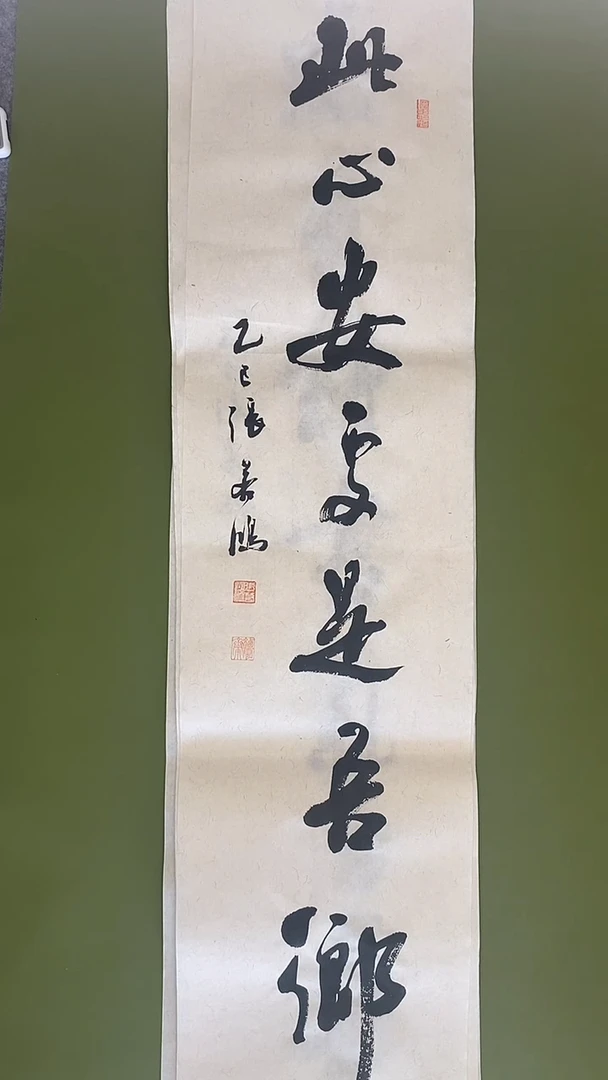 此心安處是吾鄉
乙巳張若鴻